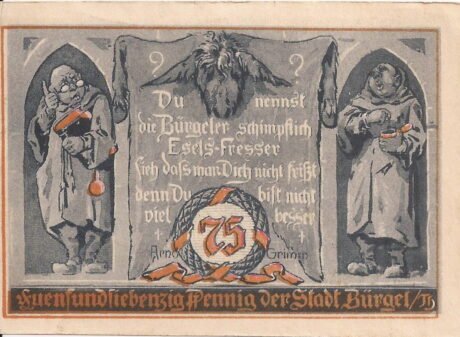 ? ?
Du nennst
die Bürgeler schimpflich
Esels-Fresser
sieh dass man Dich nicht frißt
denn Du bist nicht
viel besser
75
Arno Grimm
Fuenfundsiebenzig Pfennig der Stadt Bürgel/Th